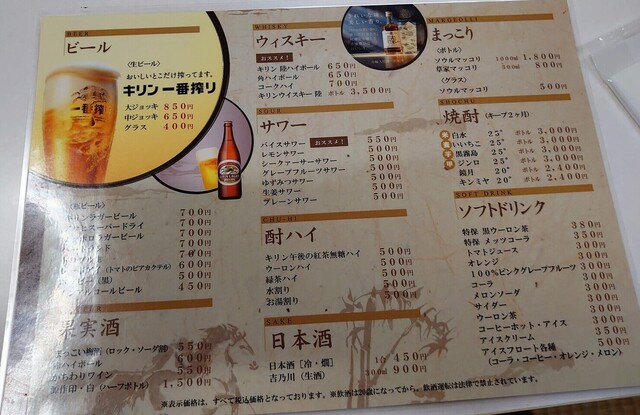 BEER
ビール
〈生ビール〉
おいしいとこだけ搾ってます。
キリン 一番搾り
大ジョッキ 850円
中ジョッキ 650円
グラス 400円
700円
700円
700円
700円
700円
(トマトのビアカクテル) 600円
(黒) 500円
コールビール 450円
果実酒
まっこい梅酒(ロック・ソーダ割) 550円
600円
がちわりワイン 550円
製作印・白(ハーフボトル) 1,500円
WHISKY
ウィスキー
おススメ!
キリン 陸ハイボール 650円
角ハイボール 650円
コークハイ 700円
キリンウイスキー 陸 ボトル 3,500円
SOUR
サワー
バイスサワー おススメ! 550円
レモンサワー 550円
シークァーサーサワー 550円
グレープフルーツサワー 550円
ゆずみつサワー 550円
生姜サワー 550円
プレーンサワー 550円
CHU-HI
酎ハイ
キリン午後の紅茶無糖ハイ 500円
ウーロンハイ 500円
緑茶ハイ 500円
水割り 500円
お湯割り 500円
SAKE
日本酒
日本酒[冷・燗] 1合 450円
吉乃川(生酒) 300ml 900円
MAKGEOLLI
まっこり
〈ボトル〉
ソウルマッコリ 1000ml 1,800円
草家マッコリ 300ml 800円
〈グラス〉
ソウルマッコリ 500円
SHOCHU
焼酎 (キープ2ヶ月)
白水 25° ボトル 3,000円
いいちこ 25° ボトル 3,000円
黒霧島 25° ボトル 3,000円
ジンロ 25° ボトル 2,400円
鏡月 20° ボトル 2,400円
キンミヤ 25° ボトル 2,400円
SOFT DRINK
ソフトドリンク
特保 黒ウーロン茶 380円
特保 メッツコーラ 350円
トマトジュース 300円
オレンジ 300円
100%ピンクグレープフルーツ 300円
コーラ 300円
メロンソーダ 300円
サイダー 300円
ウーロン茶 300円
コーヒーホット・アイス 300円
アイスクリーム 350円
アイスフロート各種 500円
(コーラ・コーヒー・オレンジ・メロン)
※表示価格は、すべて税込価格となっております。※飲酒は20歳になってから。飲酒運転は法律で禁止されています。